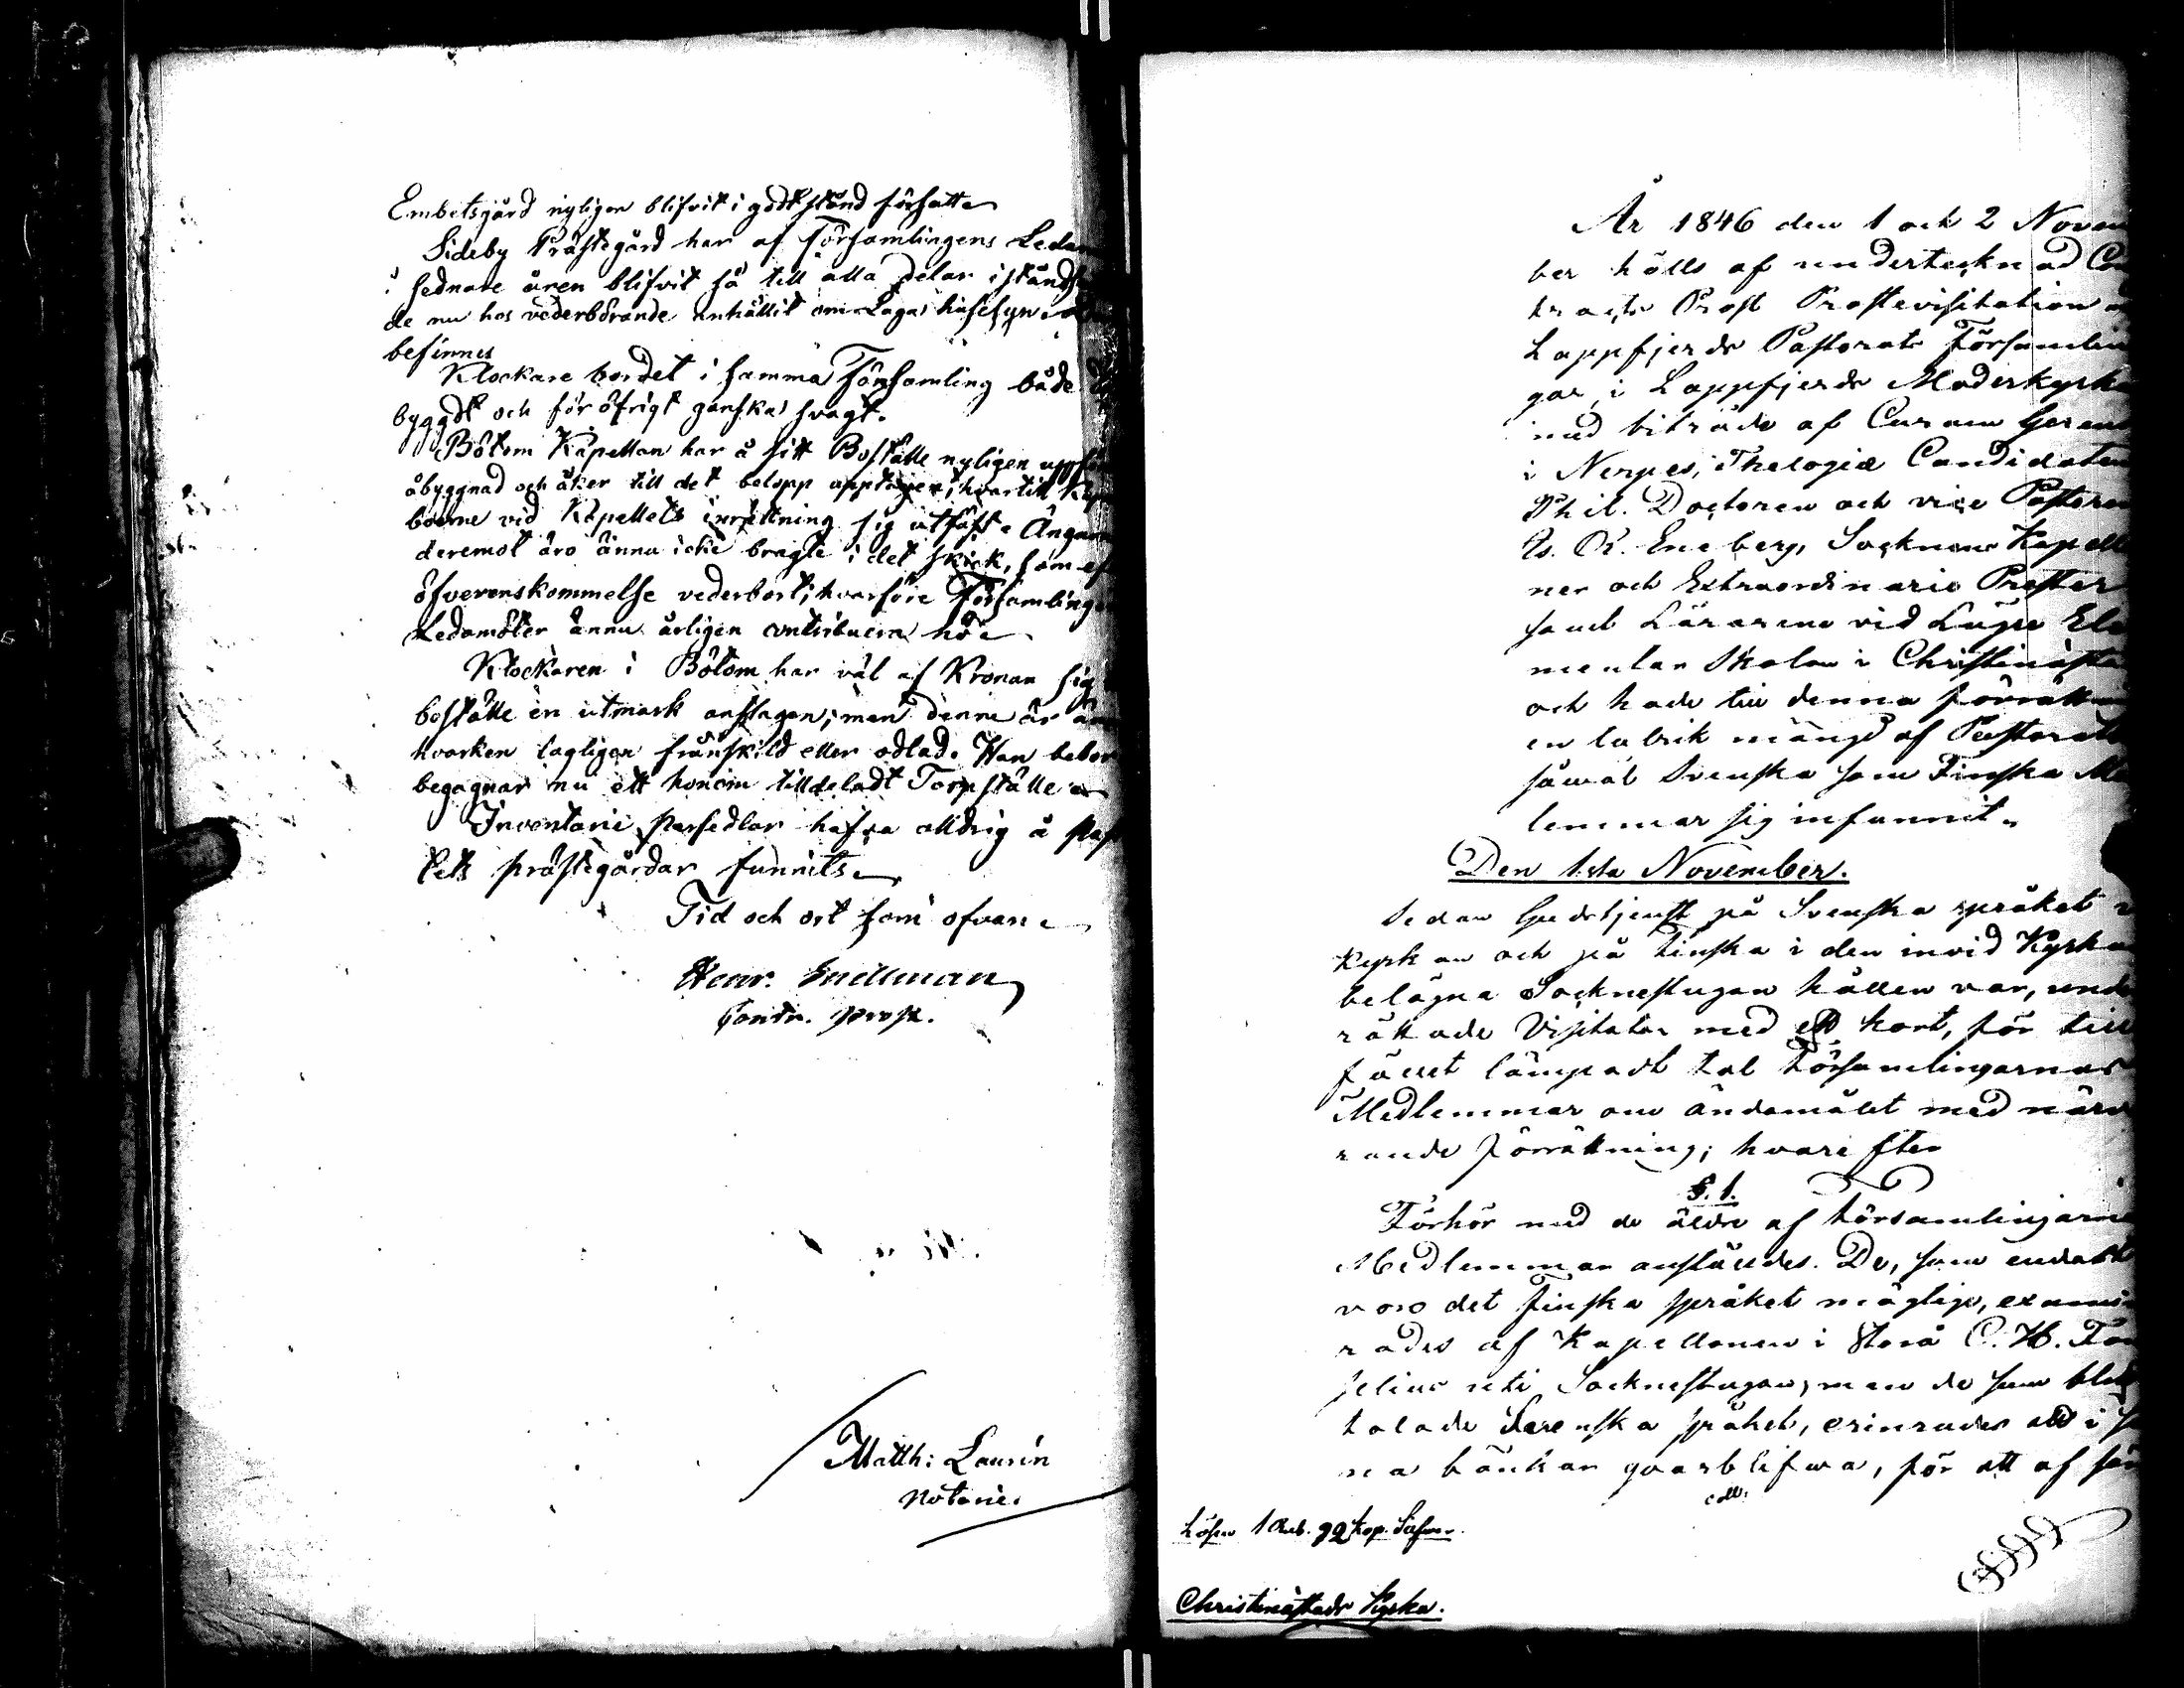 Embetsgård nyligen blifvit i godt stånd försatte
Sideby Prästegård har af Församlingens Leda
i sednare åren blifvit så till alla delar i ståndsa
de nu hos vederbörande anhållit om Laga husesyn
befinnes
Klockare bordet i samma Församling både
byggdt och för öfrigt ganska svagt.
Bötom Kapellan har å sitt Boställe nyligen uppf
åbyggnad och åker till det belopp upptagen, hvartill Kap
boerne vid Kapellets inrättning sig utfäst. Ängarn
deremot äro ännu icke bragte i det skick, som ef
öfverenskommelse vederbort; hvarföre Församlinge
Ledamöter ännu årligen contribuera hö.
Klockaren i Bötom har väl af Kronan sig
boställe en utmark anslagen; men denne är än
hvarken lagligen frånskild eller odlad. Han bebor
begagnar nu ett honom tilldeladt Torpställe
Inventarii persedlar hafva alldrig å Kap
lets prästegårdar funnits.
Tid och ort som ofvan.
Henr. Snellman
Contr. prost.
Matth: Laurin
Notarie.
År 1846 den 1 och 2 Novem
ber hölls af undertecknad Con
tracts Prost Prostevisitation
Lappfjerds Pastorats Församlin
gar, i Lappfjerds Moderkyrka
med biträde af Curam Gerens
i Nerpes, Theologiæ Candidaten
Phil. Doctoren och vice Pastoren
Is. R. Eneberg, Socknens Kapella
ner och Extraordinarie Prester
samt Lärarene vid Lägre Ele
mentar Skolan i Christinæsta
och hade till denna förrättn
en talrik mängd af Pastorats
såwäl Svenska som Finska Med
lemmar sig infunnit.
Den 1sta November.
Sedan Gudstjenst på Svenska språket i
Kyrkan och på Finska i den invid Kyrkan
belägna Socknestugan hållen var, unde
rättade Visitator med ett kort, för till
fället lämpadt tal Församlingarnas
Medlemmar om ändamålet med närv
rande förrättning; hvarefter
§. 1.
Förhör med de äldre af Församlingarne
Medlemmar anställdes. De, som endast
voro det Finska språket mägtige, exami
rades af Kapellanen i Storå C. H. For
selius uti Socknestugan, men de som blott
talade Svenska språket, erinrades att i s
na bänkar qvarblifwa, för att af sär
coll.
Lösen 1 Rub. 92 Kop. Silfver.
Christinæstads Kyrka.